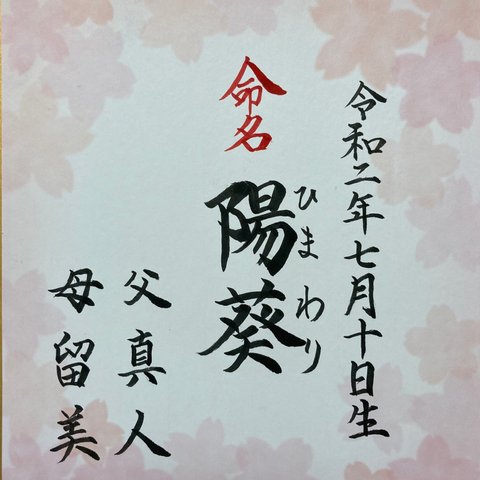 令和二年七月十日生
命名
陽葵
ひまわり
父真人
母留美